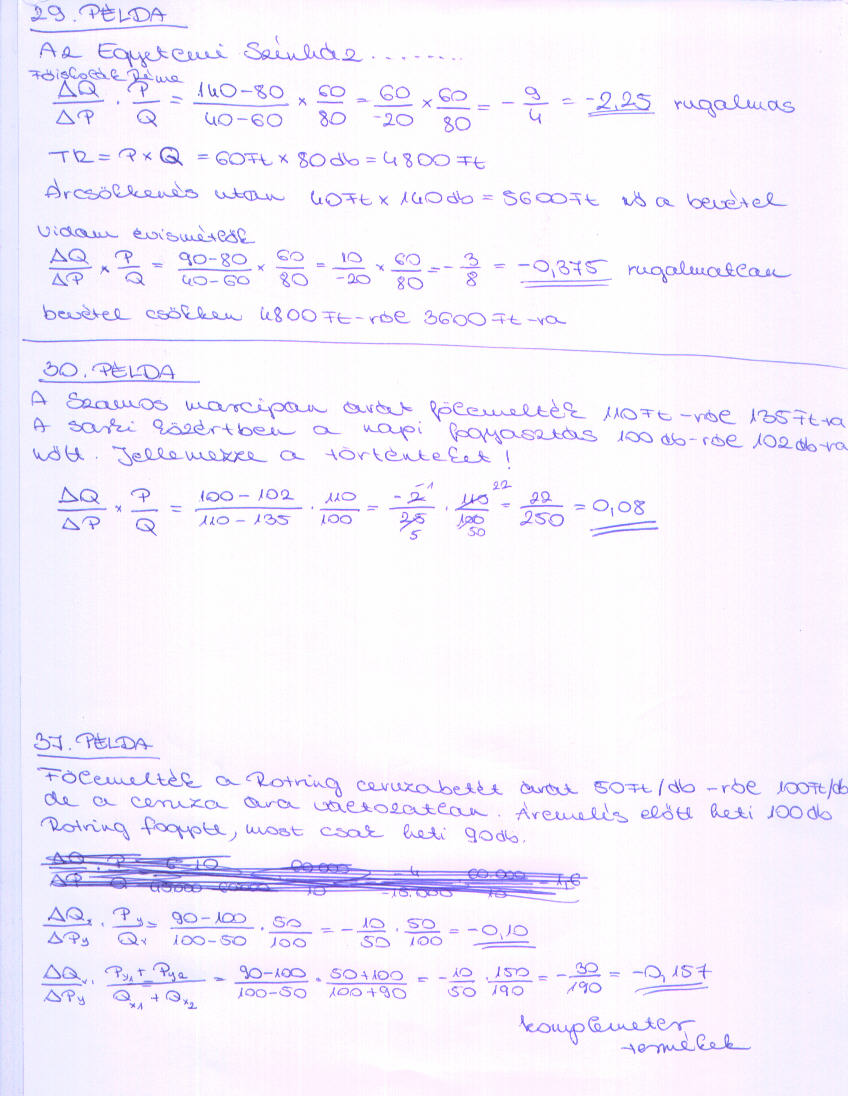 29. PÉLDA
Az Egyetemi Színház ........
Főiskolák Réme
ΔQ/ΔP · P/Q = 140-80/40-60 × 60/80 = 60/-20 × 60/80 = -9/4 = -2,25 rugalmas
TR = P × Q = 60Ft × 80 db = 4800 Ft
Árcsökkenés után 40Ft × 140 db = 5600Ft nő a bevétel
vidám évismétlők
ΔQ/ΔP × P/Q = 90-80/40-60 × 60/80 = 10/-20 × 60/80 = -3/8 = -0,375 rugalmatlan
bevétel csökken 4800 Ft-ról 3600 Ft-ra
30. PÉLDA
A Szamos marcipán árát fölemelték 110Ft-ról 135Ft-ra
A sarki közértben a napi fogyasztás 100 db-ról 102 db-ra
nőtt. Jellemezze a történteket!
ΔQ/ΔP × P/Q = 100-102/110-135 · 110/100 = -2 -1/25 5 · 110 22/100 50 = 22/250 = 0,08
37. PÉLDA
Fölemelték a Rotring ceruzabetét árát 50Ft/db-ról 100Ft/db
de a ceruza ára változatlan. Áremelés előtt heti 100 db
Rotring fogyott, most csak heti 90 db.
ΔQx/ΔPy · Py/Qx = 90-100/100-50 · 50/100 = -10/50 · 50/100 = -0,10
ΔQx/ΔPy · Py1 + Py2/Qx1 + Qx2 = 90-100/100-50 · 50+100/100+90 = -10/50 · 150/190 = -30/190 = -0,157
komplemeter
termékek